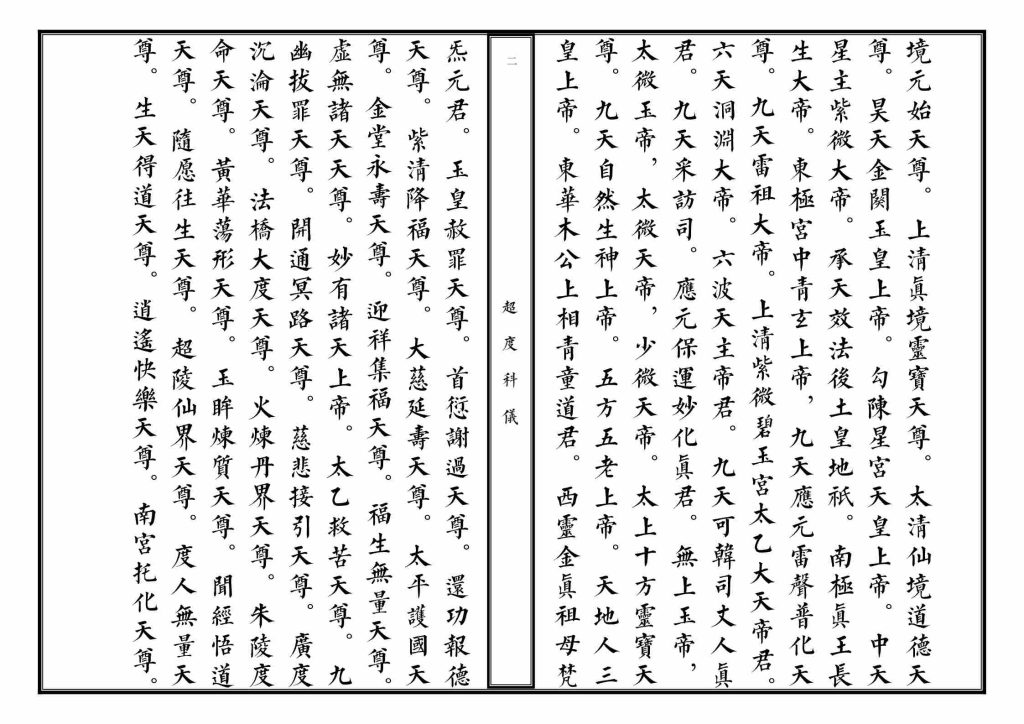 境元始天尊。上清眞境靈寶天尊。太清仙境道德天
尊。昊天金闕玉皇上帝。勾陳星宮天皇上帝。中天
星主紫微大帝。承天效法後土皇地祇。南極眞王長
生大帝。東極宮中青玄上帝，九天應元雷聲普化天
尊。九天雷祖大帝。上清紫微碧玉宮太乙大天帝君。
六天洞淵大帝。六波天主帝君。九天可韓司丈人眞
君。九天采訪司。應元保運妙化眞君。無上玉帝，
太微玉帝，太微天帝，少微天帝。太上十方靈寶天
尊。九天自然生神上帝。五方五老上帝。天地人三
皇上帝。東華木公上相青童道君。西靈金眞祖母梵
二
超度科儀
炁元君。玉皇赦罪天尊。首愆謝過天尊。還功報德
天尊。紫清降福天尊。大慈延壽天尊。太平護國天
尊。金堂永壽天尊。迎祥集福天尊。福生無量天尊。
虛無諸天天尊。妙有諸天上帝。太乙救苦天尊。九
幽拔罪天尊。開通冥路天尊。慈悲接引天尊。廣度
沉淪天尊。法橋大度天尊。火煉丹界天尊。朱陵度
命天尊。黃華蕩形天尊。玉眸煉質天尊。聞經悟道
天尊。隨愿往生天尊。超陵仙界天尊。度人無量天
尊。生天得道天尊。逍遙快樂天尊。南宮托化天尊。